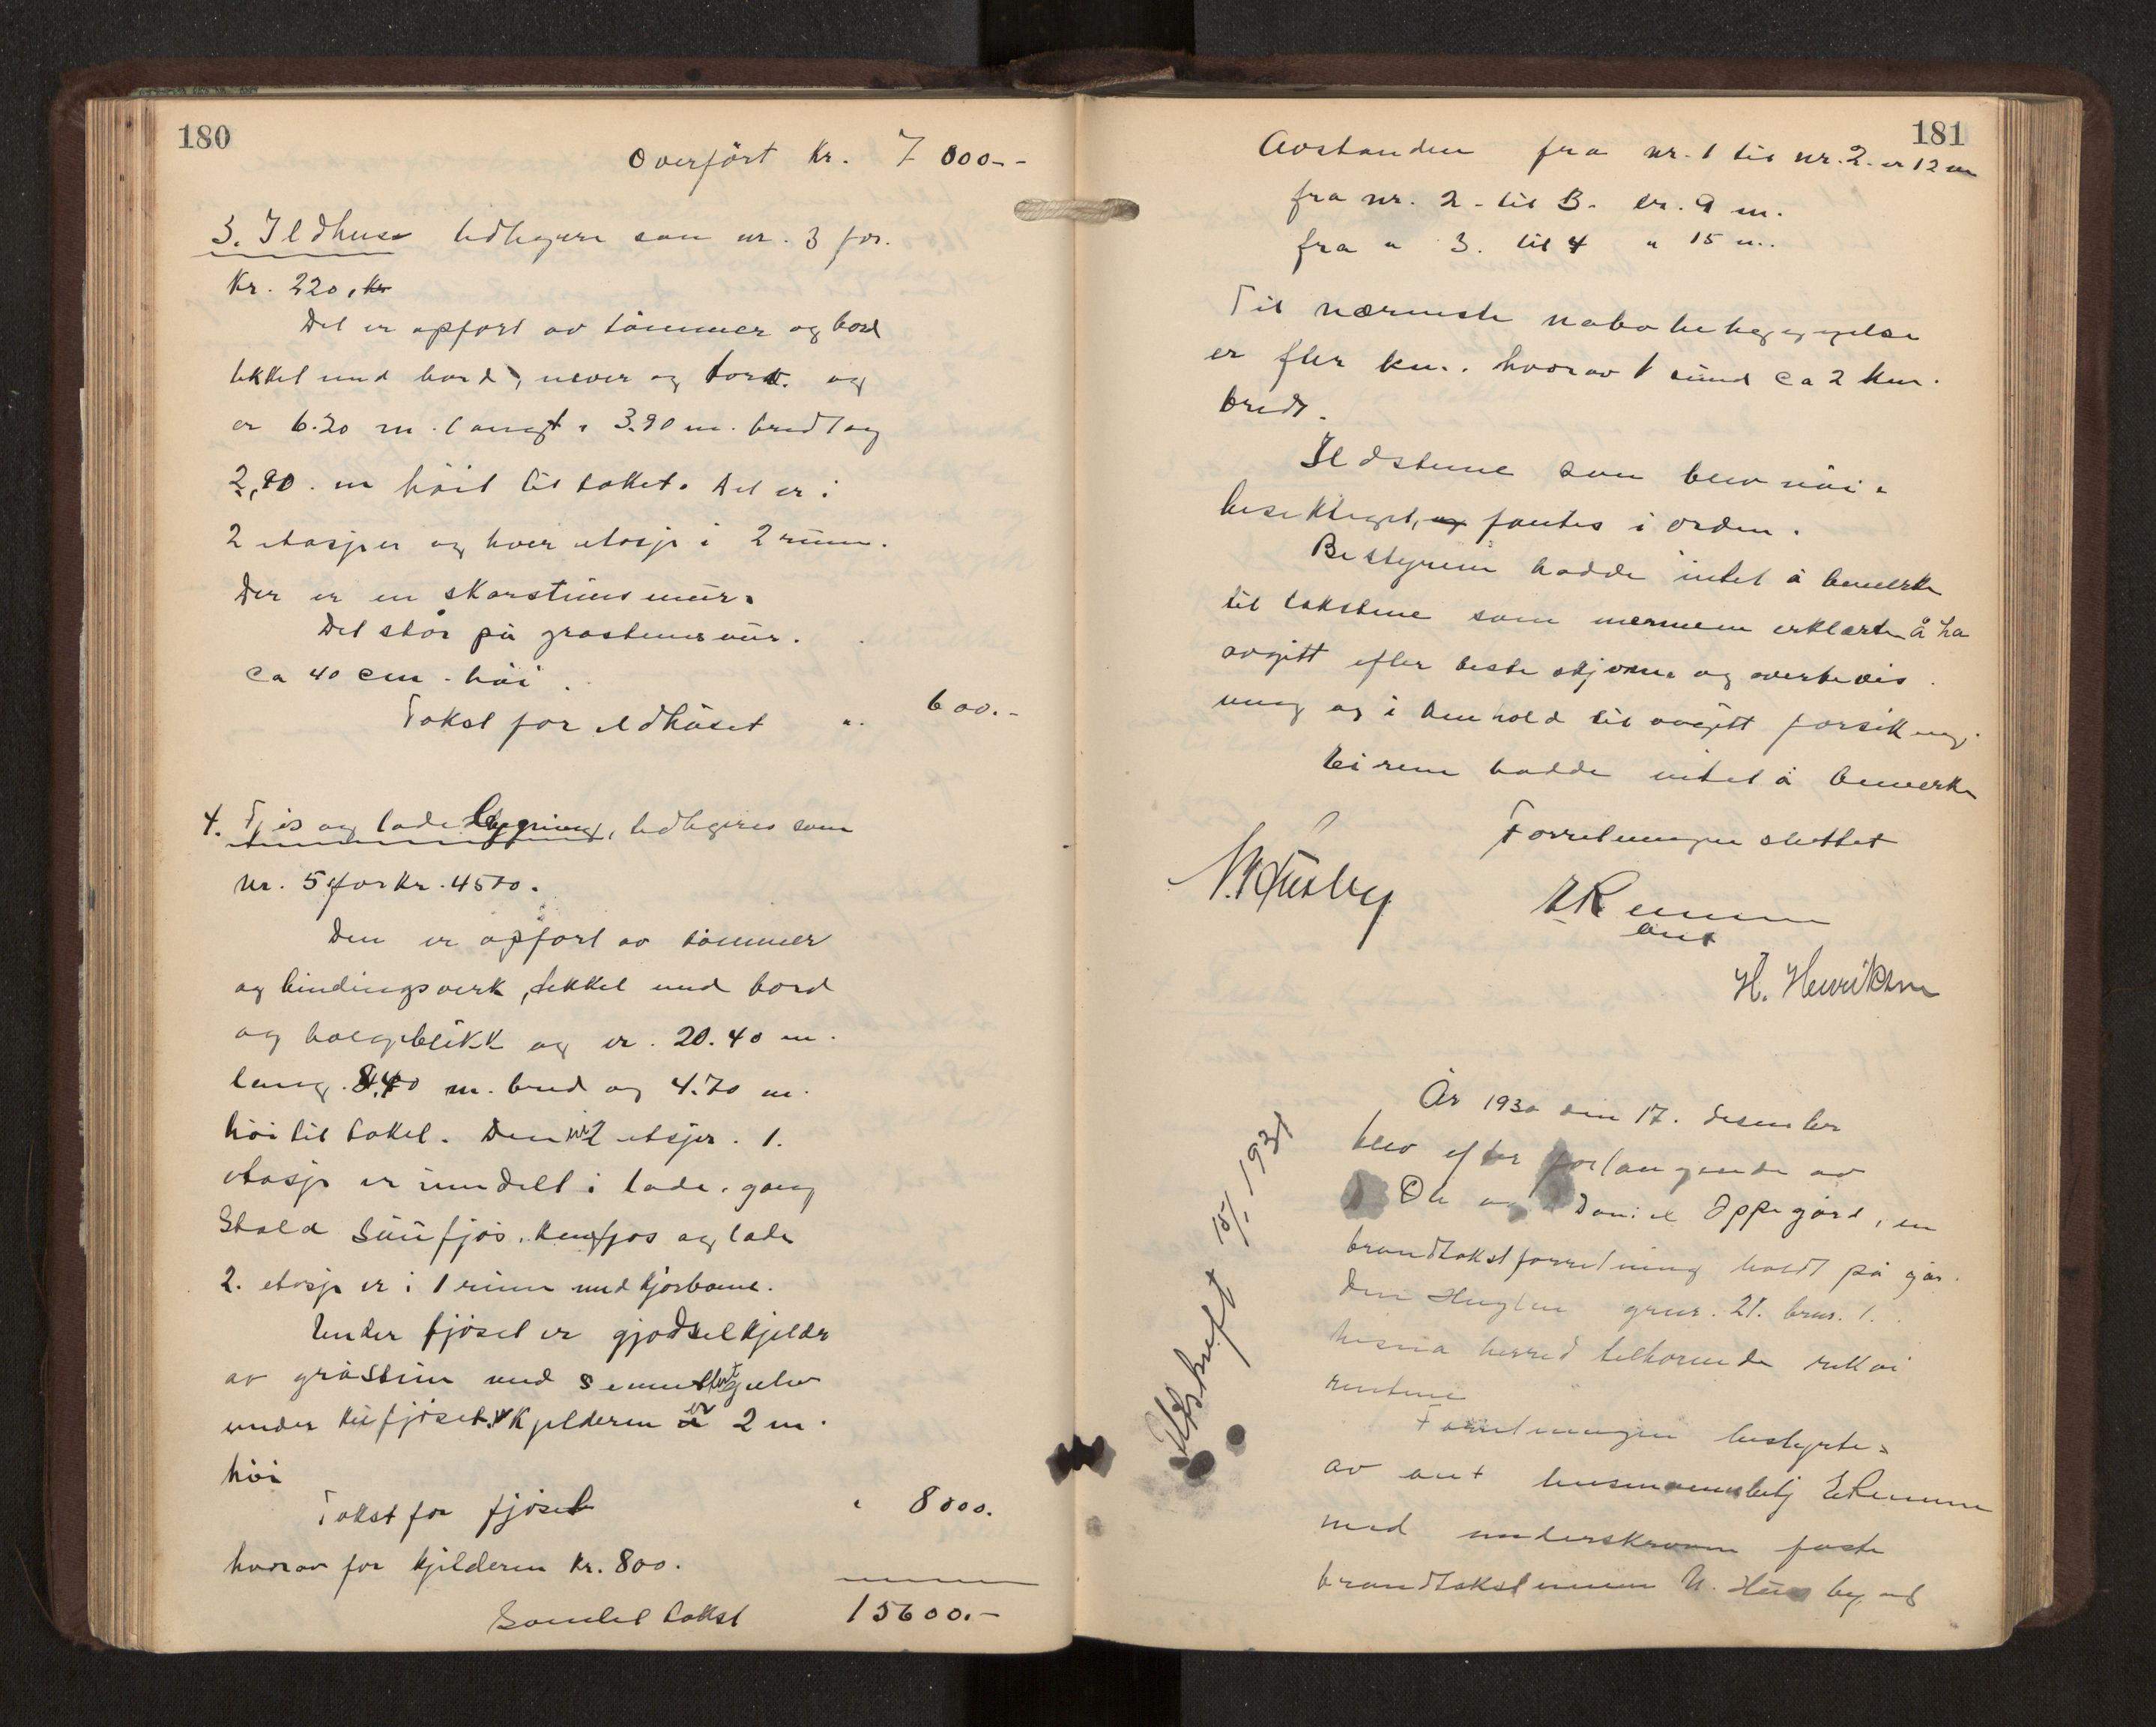 180
Overført Kr. 7 000.-
3. Ildhuse tidligere som nr. 3 for
Kr. 220, kr
Det er opført av tømmer og bord
tekket med bord, never og torv. og
er 6.20 m. langt, 3.90 m. bredt og
2,90. m høit til taket. Det er i
2 etasjer og hver etasje i 2 rum.
Der er en skorstensmur.
Det står på gråstensmur.
ca 40 cm. høi.
Takst for ildhuset ". 600.-
4. Fjøs og ladebygning, tidligere som
nr. 5 for Kr. 4500.
Den er opført av tømmer
og bindingsverk, tekket med bord
og bølgeblikk og er. 20.40 m.
lang. 8,40 m. bred og 4.70 m.
høi til taket. Den i 2 etasjer. 1.
etasje er inndelt i lade, gang
Stald Saufjøs, kufjøs og lade
2. etasje er i 1 rum med kjørbane.
Under fjøset er gjødselkjelder
av gråsten med sementgulv
under kufjøset. Kjelderen er 2 m.
høi
Takst for fjøset " 8000.
hvorav for kjelderen Kr. 800.
Samlet takst 15600.-
181
Avstanden fra nr. 1 til nr. 2. er 12 m
fra nr. 2 - til 3. er. 9 m.
fra " 3. til 4 " 15 m.
Til nærmeste nabobebyggelse
er flere km. hvorav 1 sund ca 2 km.
bredt.
Ildstedene som blev nøie
besiktiget, og fantes i orden.
Bestyreren hadde intet å bemerke
til takstene som mennene erklærte å ha
avgitt efter beste skjønn og overbevis
ning og i henhold til avgitt forsikring.
Eieren hadde intet å bemerke
Forretningen sluttet
N. Husby
E Remmen
ant
H. Henriksen
År 1930 den 17. desember
blev efter forlangende av
Ole og Daniel Oppegård, en
brandtakstforretning holdt på går
den Huglen gnr. 21. brnr. 1.
Nesna herred tilhørende rekvi
rentene
Forretningen bestyrtes
av ant lensmannsbetj E Remmen
med underskrevne faste
brandtakstmenn N. Husby og
Utskrift 15/1 1931